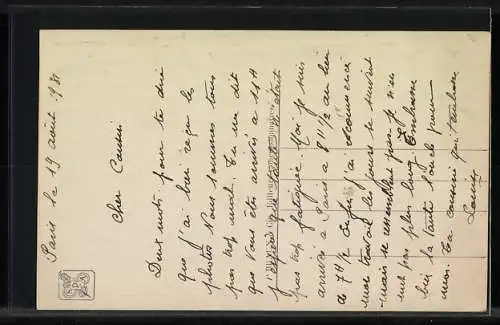 Paris le 19 août 1931
Cher Cousin
Deux mots pour te dire
que j'ai bien reçu les
photos Nous sommes tous
pas trop mal. Tu me dit
que Vous êtes arrivés a 11 H
pas trop fatiguée. Moi je suis
arrivé a Paris a 8 H 1/2 au lieu
de 7 H 1/2 Enfin j'ai recommencé
mon travail les jours se suivent
mais se ressemblent pas je n'en
met pas plus long. Embrasse
bien la Tante Louise pour
moi. Ta cousine qui t'embrasse